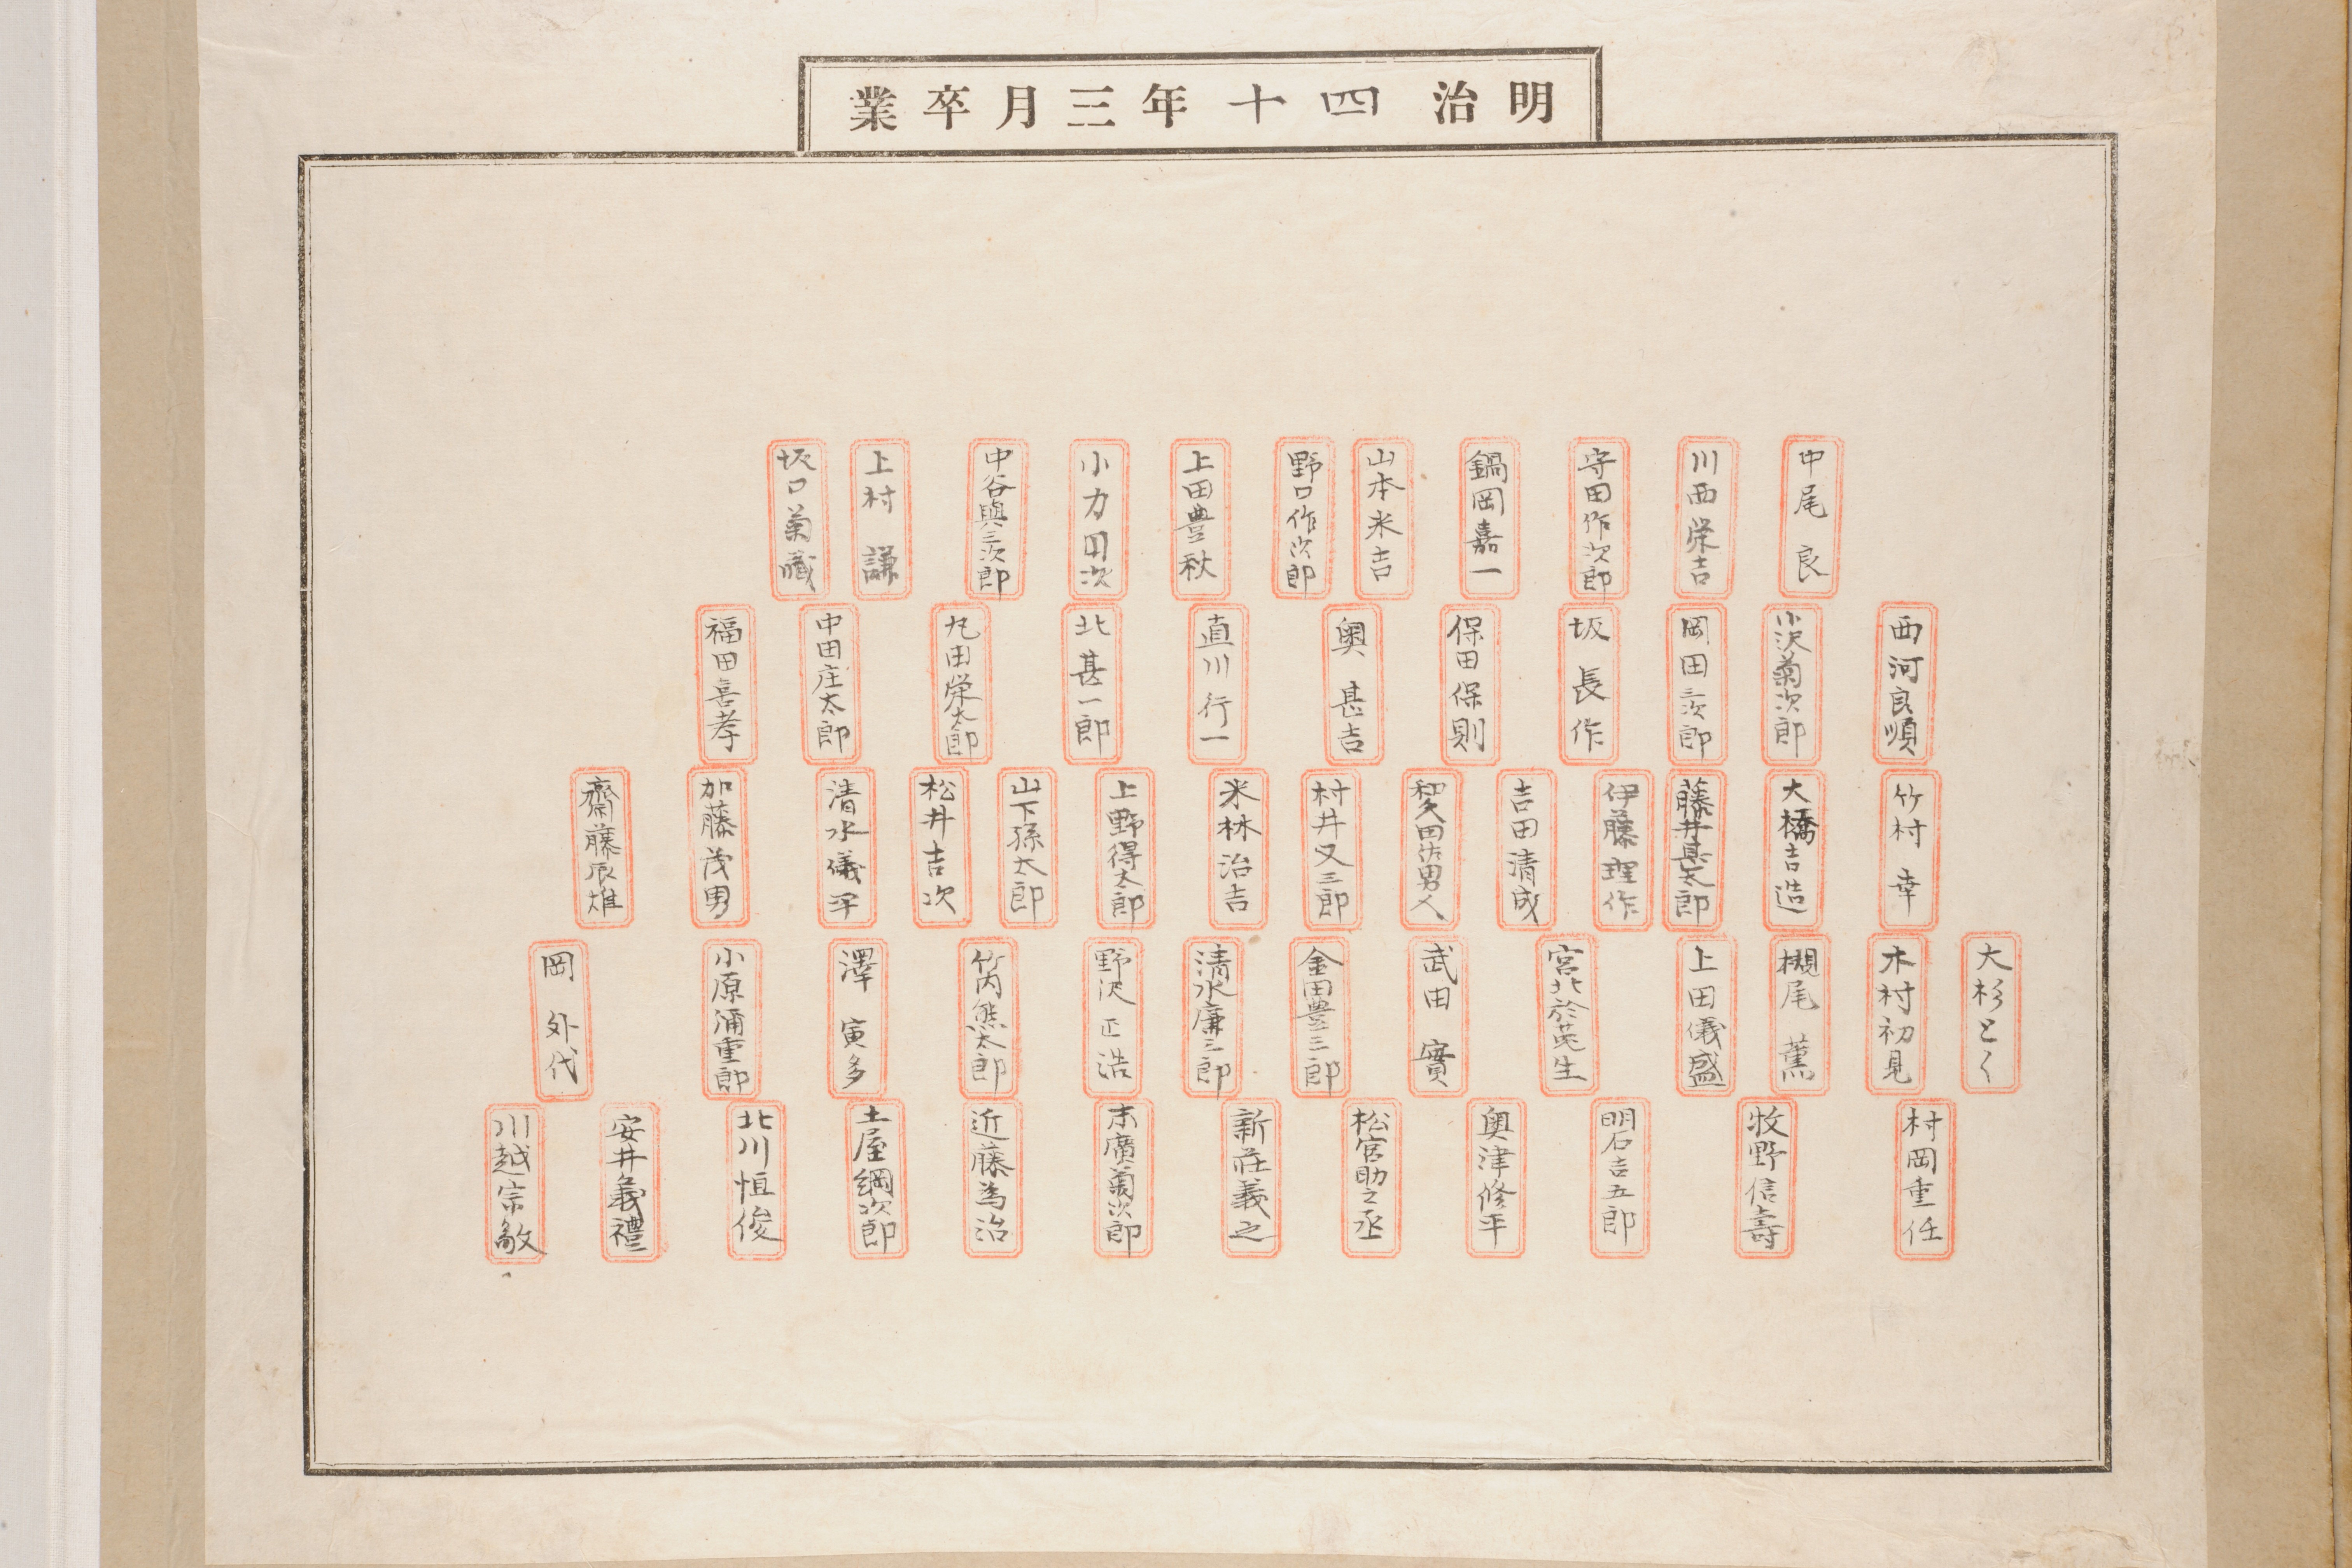 明治四十年三月卒業
中尾良
川西栄吉
守田作次郎
鍋岡嘉一
山本米吉
野口作次郎
上田豊秋
小力田次
中谷與三次郎
上村謙
坂口菊蔵
西河良順
小沢菊次郎
岡田三次郎
坂長作
保田保則
奥甚吉
直川行一
北甚一郎
丸田栄太郎
中田庄太郎
福田喜孝
竹村幸
大橋吉造
藤井甚太郎
伊藤理作
吉田清成
村井又三郎
米林治吉
上野得太郎
山下孫太郎
松井吉次
清水儀平
加藤茂男
齋藤辰雄
大杉とく
木村初見
槻尾薫
上田儀盛
宮北於菟生
武田實
金田豊三郎
清水廉三郎
野沢正浩
竹内熊太郎
澤寅多
小原彌重郎
岡外代
村岡重任
牧野信壽
明石吉五郎
奥津修平
松宮助之丞
新荘義之
末廣菊次郎
近藤為治
土屋綱次郎
北川恒俊
安井義禮
川越宗敏